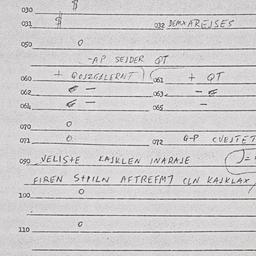 030 $
031 $ 032 DEMXAREJSES
050 0
-AP SEJDER QT
060 + QOJZGELERNT) 061 + QT
062 € - 063 - €
064 € - 065 -
070 0
071 0 072 G-P CVEJTET
090 VELISTE KAJKLEN INARAJE
FIREN STPILN AFTREFM7 CLN KAJKLAX
100 0
110 0